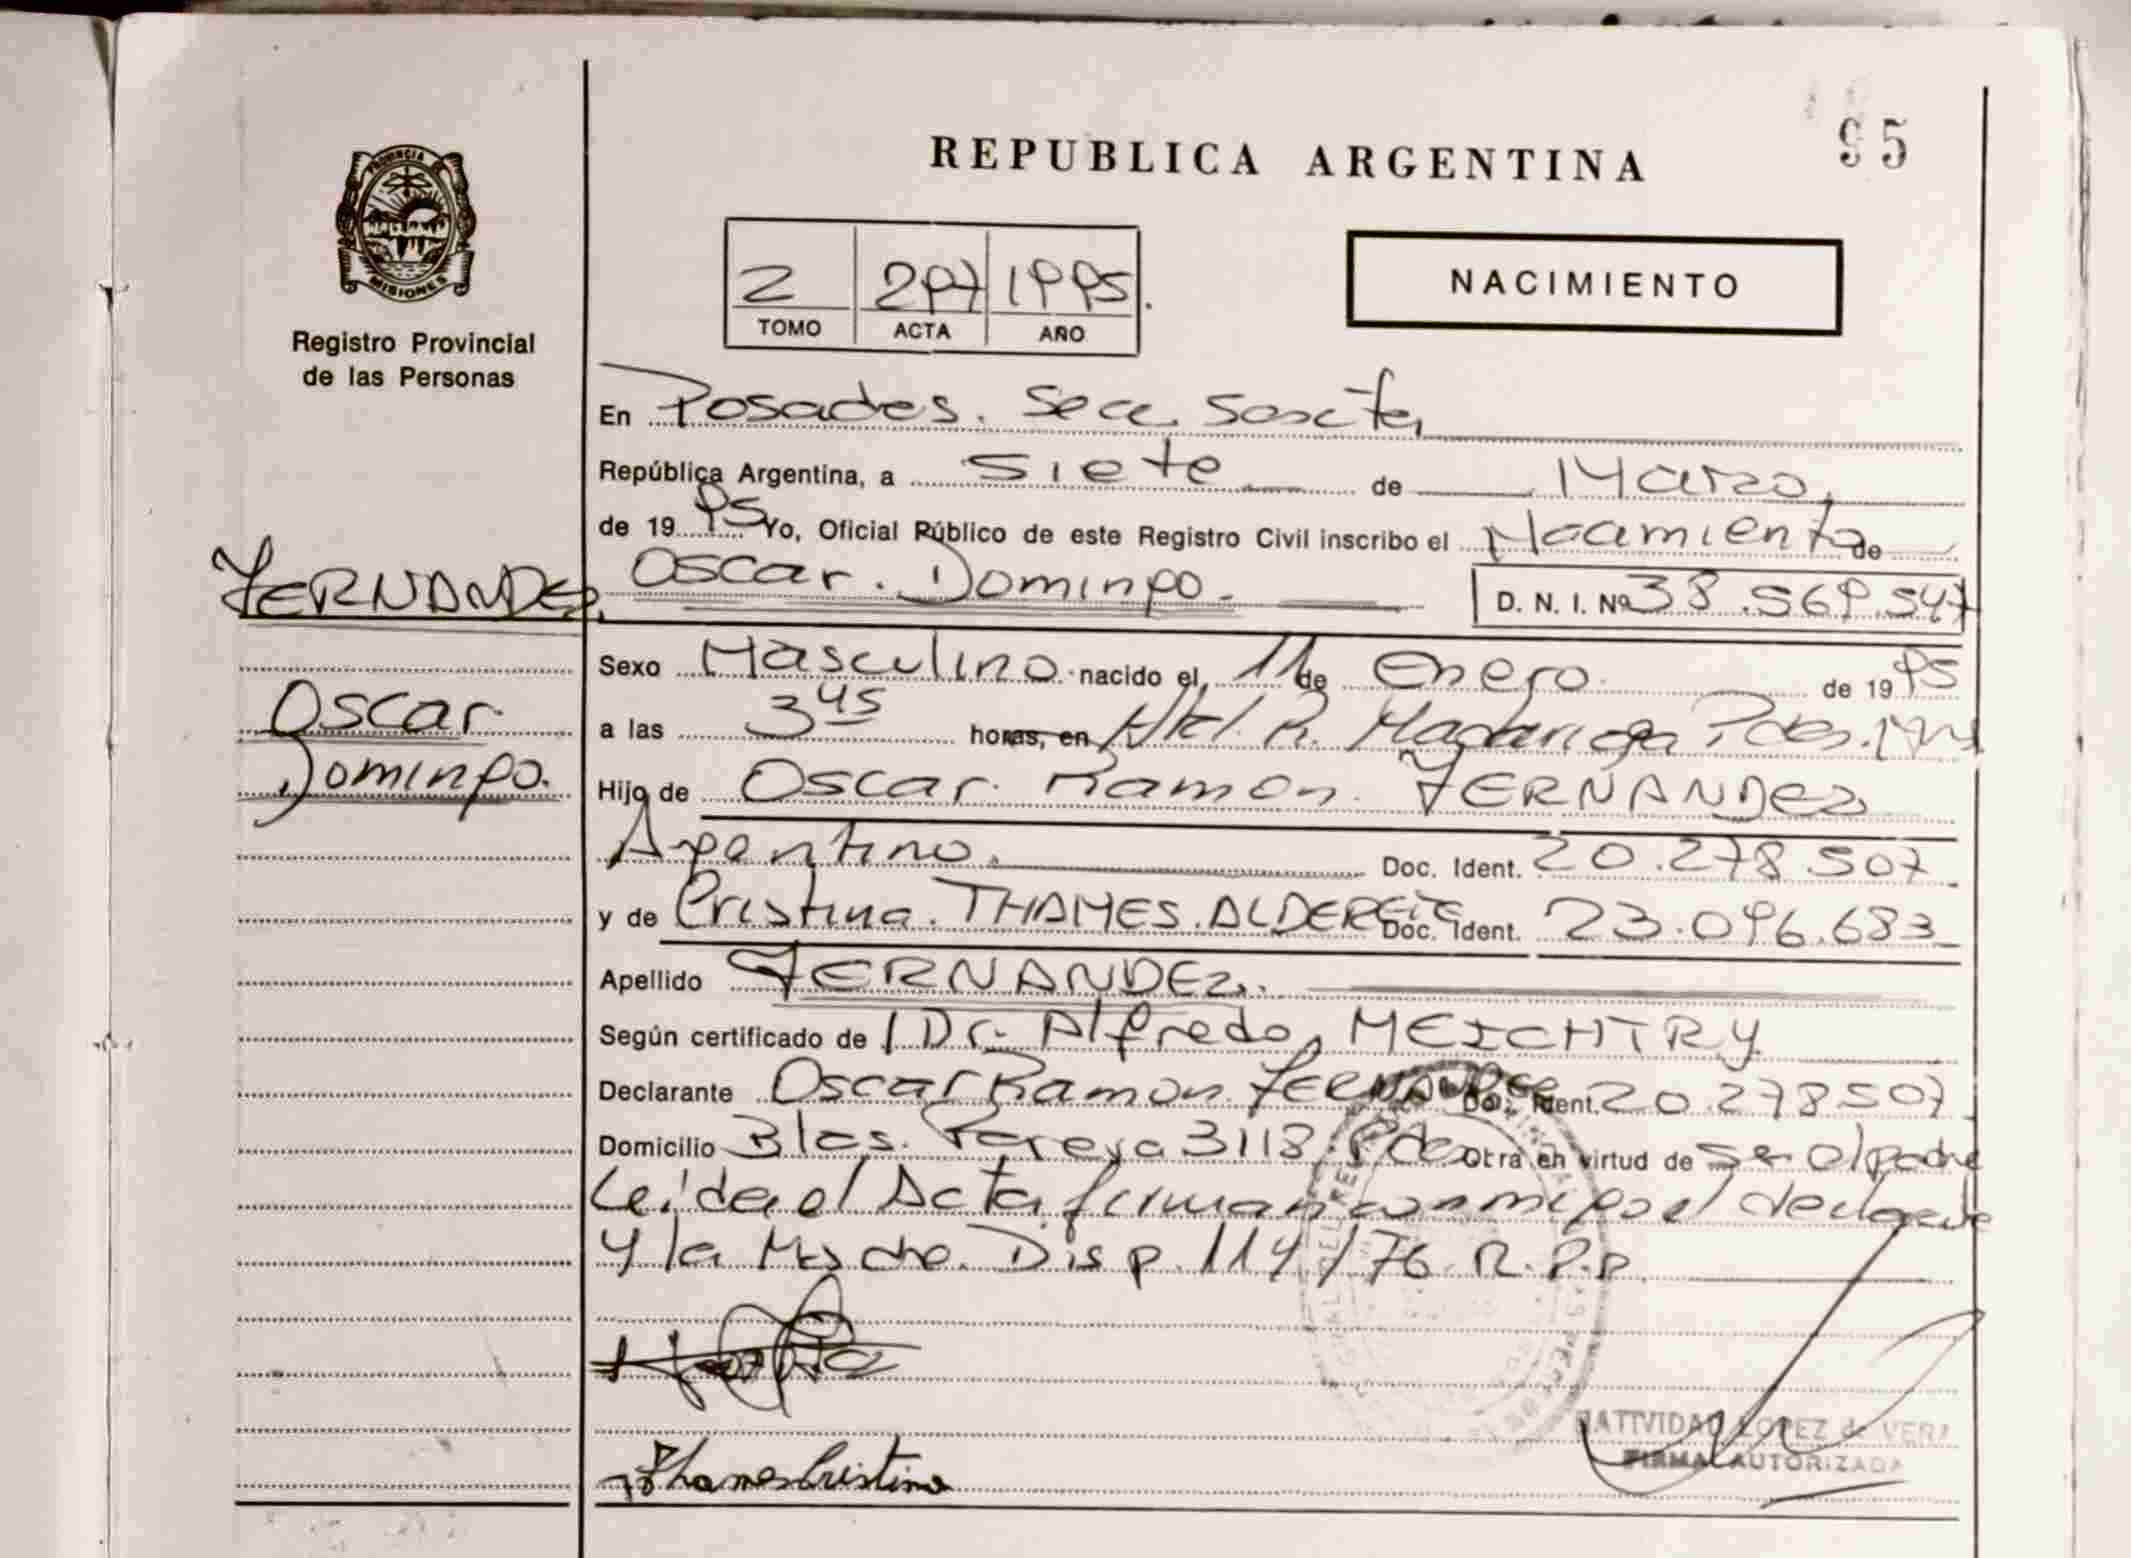 REPUBLICA ARGENTINA
95
PROVINCIA DE
MISIONES
Registro Provincial
de las Personas
2 297 1995.
TOMO ACTA AÑO
NACIMIENTO
En Posadas. Secc. Sexta,
República Argentina, a siete de Marzo,
de 1995 Yo, Oficial Público de este Registro Civil inscribo el Nacimiento de
FERNANDEZ, Oscar. Domingo. D. N. I. Nº 38.569.547
Sexo Masculino nacido el 11 de Enero de 1995
Oscar
a las 3 45 horas, en Htal. R. Madariaga Pdas. Mns
Domingo.
Hijo de Oscar Ramon FERNANDEZ
Argentino. Doc. Ident. 20.278.507
y de Cristina. THAMES. ALDERETE Doc. Ident. 23.096.683
Apellido FERNANDEZ.
Según certificado de Dr. Alfredo MEICHTRY
Declarante Oscar Ramon FERNANDEZ Doc. Ident. 20.278507
Domicilio Blas. Pareya 3118. Pdas Otra en virtud de ser el padre
Leida el Acta firman conmigo el declarante
y la Madre. Disp. 114/76. R.P.P.
Thames Cristina
NATIVIDAD LOPEZ de VERA
FIRMA AUTORIZADA